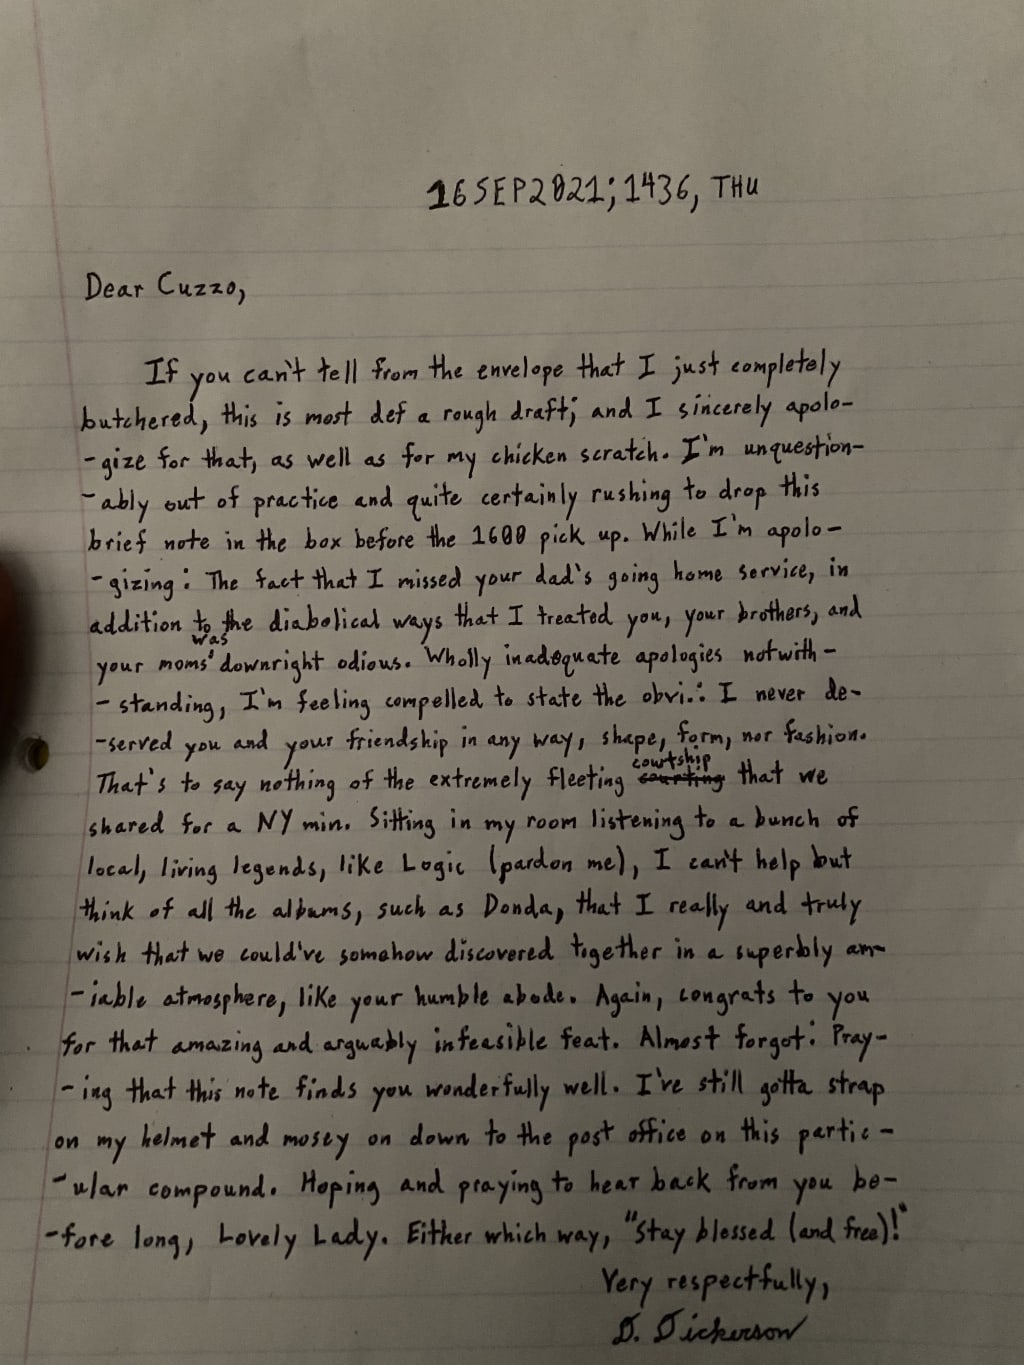 16SEP2021; 1436, THU
Dear Cuzzo,
If you can't tell from the envelope that I just completely
butchered, this is most def a rough draft; and I sincerely apolo-
-gize for that, as well as for my chicken scratch. I'm unquestion-
-ably out of practice and quite certainly rushing to drop this
brief note in the box before the 1600 pick up. While I'm apolo-
-gizing: The fact that I missed your dad's going home service, in
addition to the diabolical ways that I treated you, your brothers, and
was
your moms' downright odious. Wholly inadequate apologies notwith-
-standing, I'm feeling compelled to state the obvi.: I never de-
-served you and your friendship in any way, shape, form, nor fashion.
courtship
That's to say nothing of the extremely fleeting courting that we
shared for a NY min. Sitting in my room listening to a bunch of
local, living legends, like Logic (pardon me), I can't help but
think of all the albums, such as Donda, that I really and truly
wish that we could've somehow discovered together in a superbly am-
-iable atmosphere, like your humble abode. Again, congrats to you
for that amazing and arguably infeasible feat. Almost forgot: Pray-
-ing that this note finds you wonderfully well. I've still gotta strap
on my helmet and mosey on down to the post office on this partic-
-ular compound. Hoping and praying to hear back from you be-
-fore long, Lovely Lady. Either which way, "Stay blessed (and free)!"
Very respectfully,
D. Dickerson